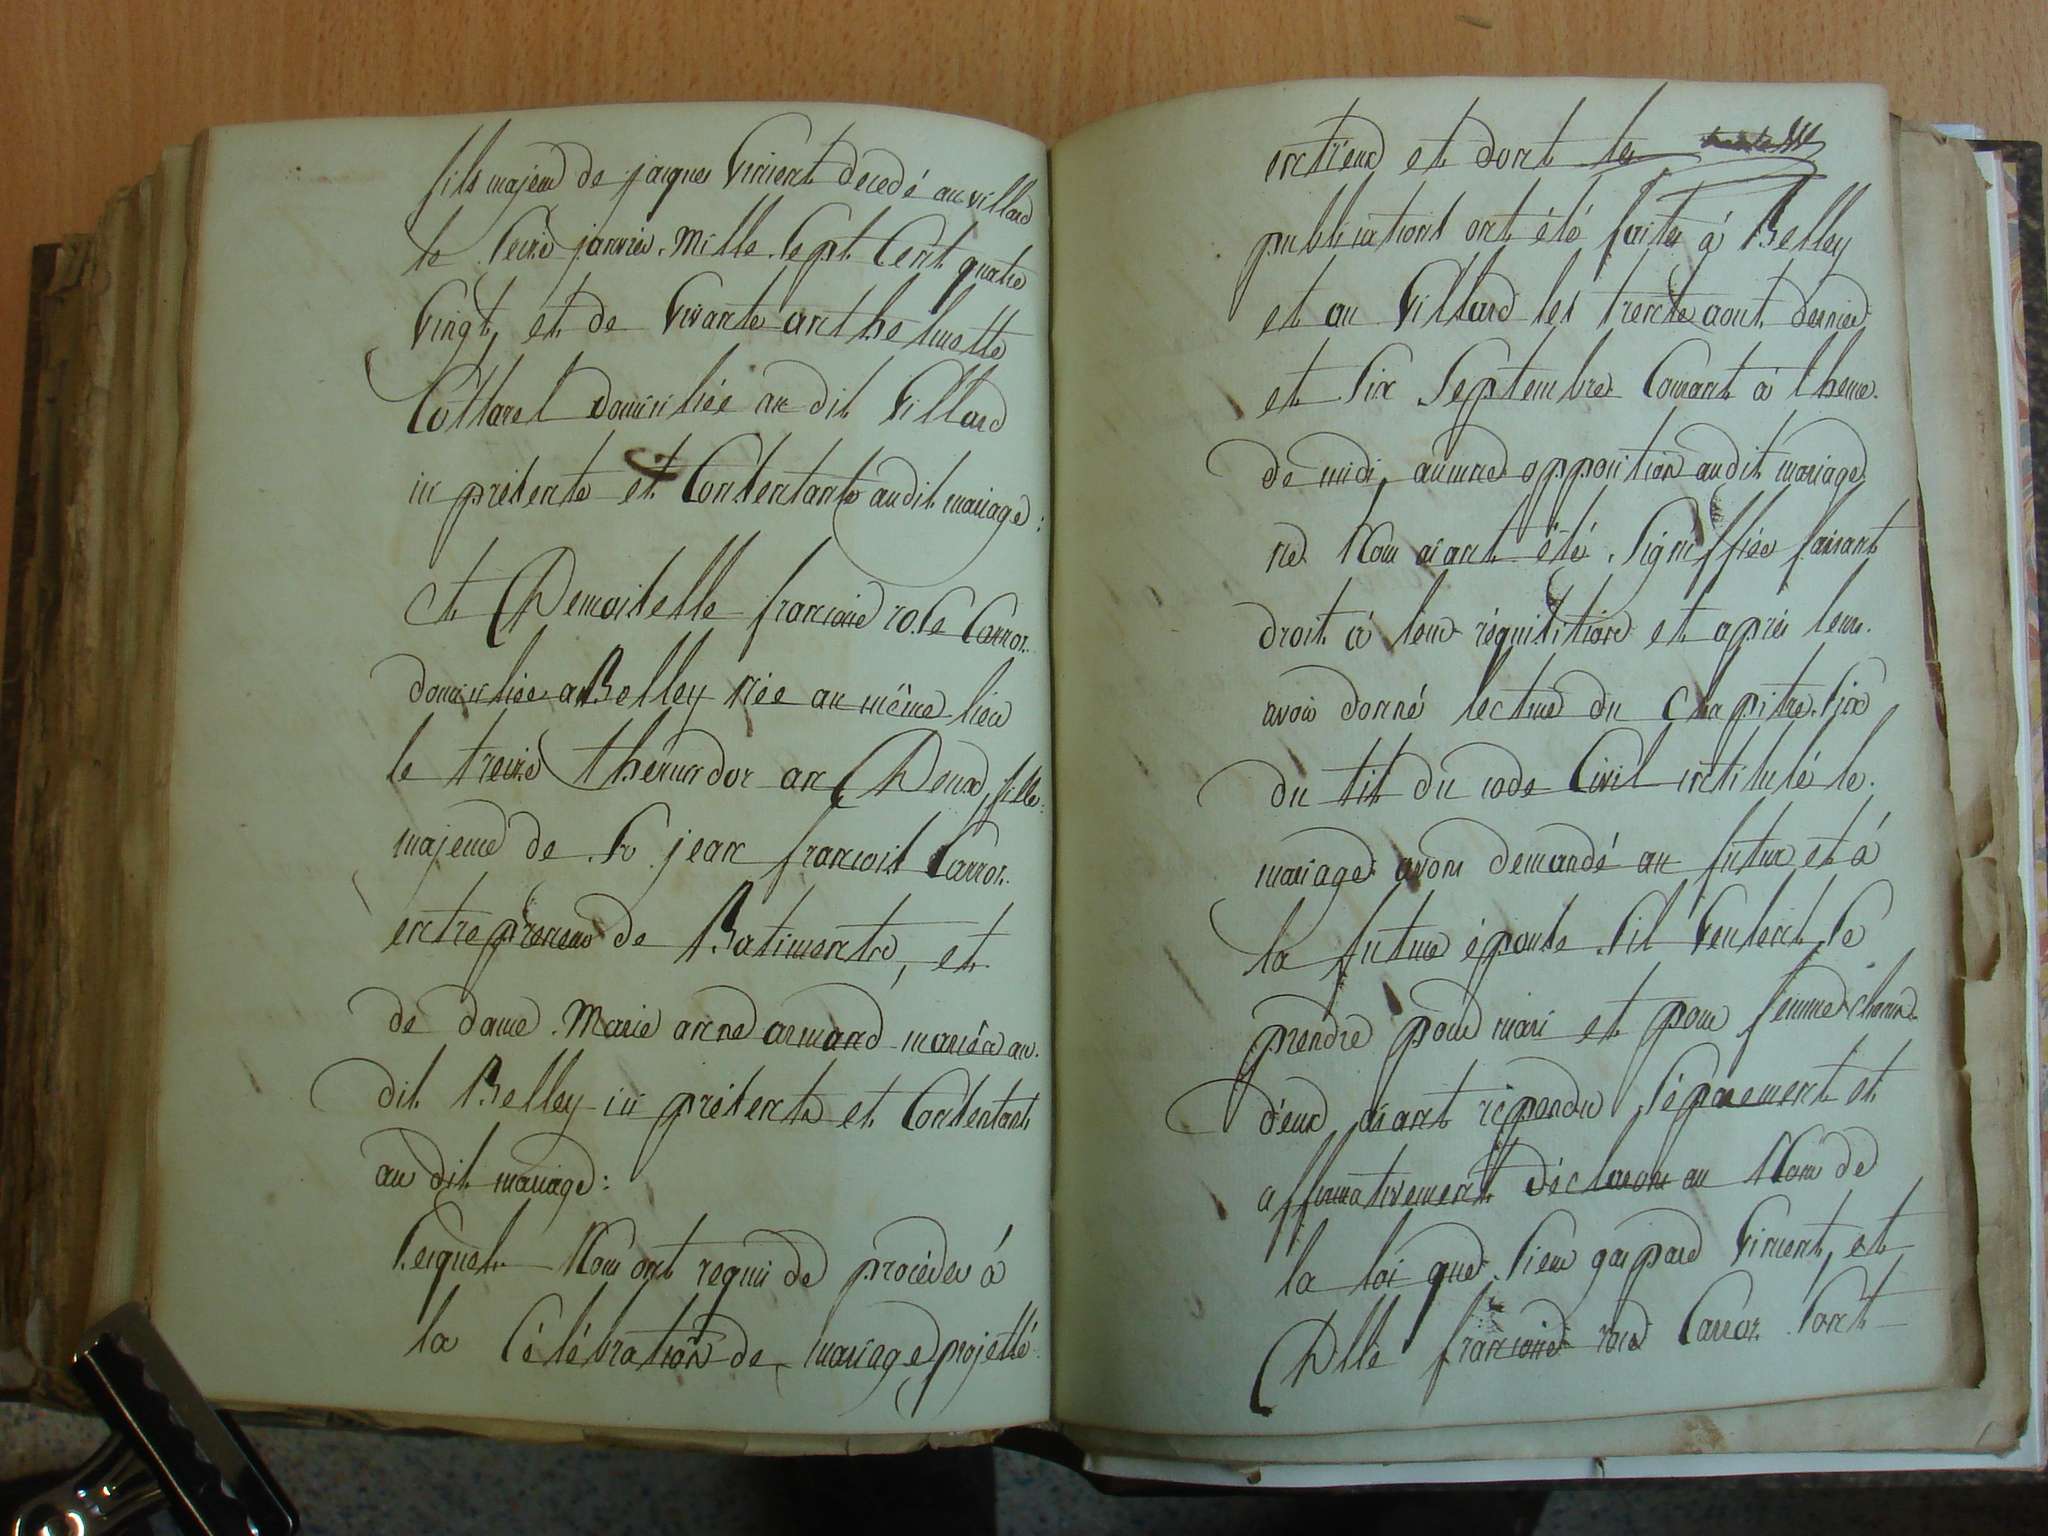 fils majeur de jacques Vincent decedé au villard
le seize janvier mille sept Cent quatre
Vingt, et de Vivante anthelmette
Cottarel domiciliée au dit Villard
ici présente et Consentante audit mariage :
Et Demoiselle francoise rose Carron
domiciliée a Belley née au même lieu
le treize thermidor an Deux, fille
majeure de Sr jean francois Carron
entrepreneur de Batiments, et
de dame Marie anne armand mariés au
dit Belley ici présents et Consentant
au dit mariage :
Lesquels Nous ont requis de procéder à
la Célébration de mariage projetté
entreux et dont les
publications ont été faites à Belley
et au Villard les trente aout dernier
et six Septembre Courant à l'heure
de midi, aucune opposition audit mariage
ne Nous aiant été signiffiée faisant
droit à leur réquisition et après leur
avoir donné lecture du Chapitre six
du tit du code Civil intitulé le
mariage avons demandé au futur et à
la future épouse s'il Veulent se
prendre pour mari et pour femme chacun
d'eux aiant répondu séparement et
affirmativement déclarons au Nom de
la loi que sieur gaspard Vincent, et
Dlle francoise rose Carron sont